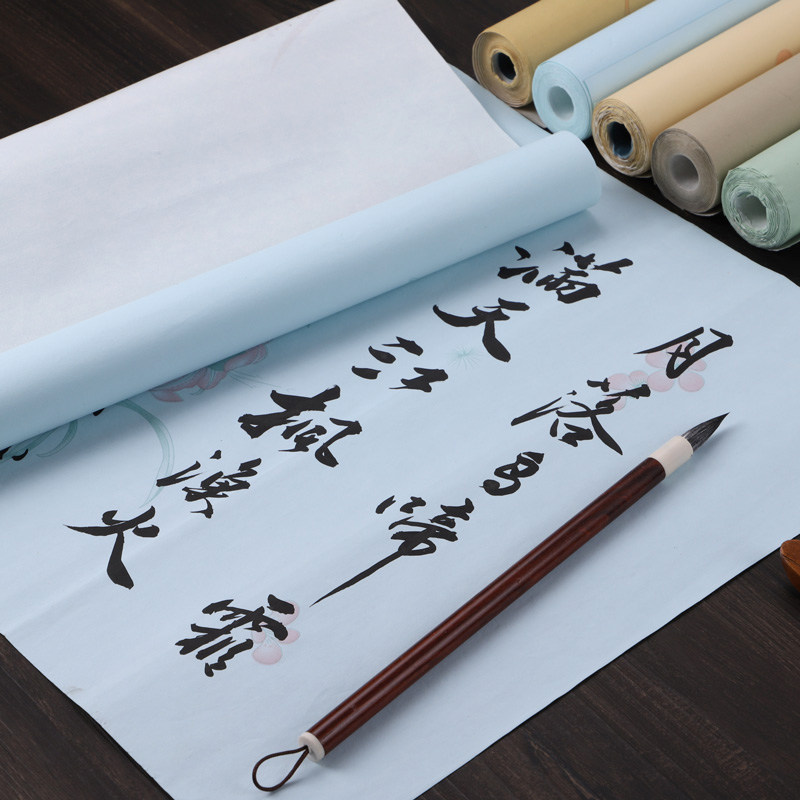 月落乌啼霜
满天江枫渔火